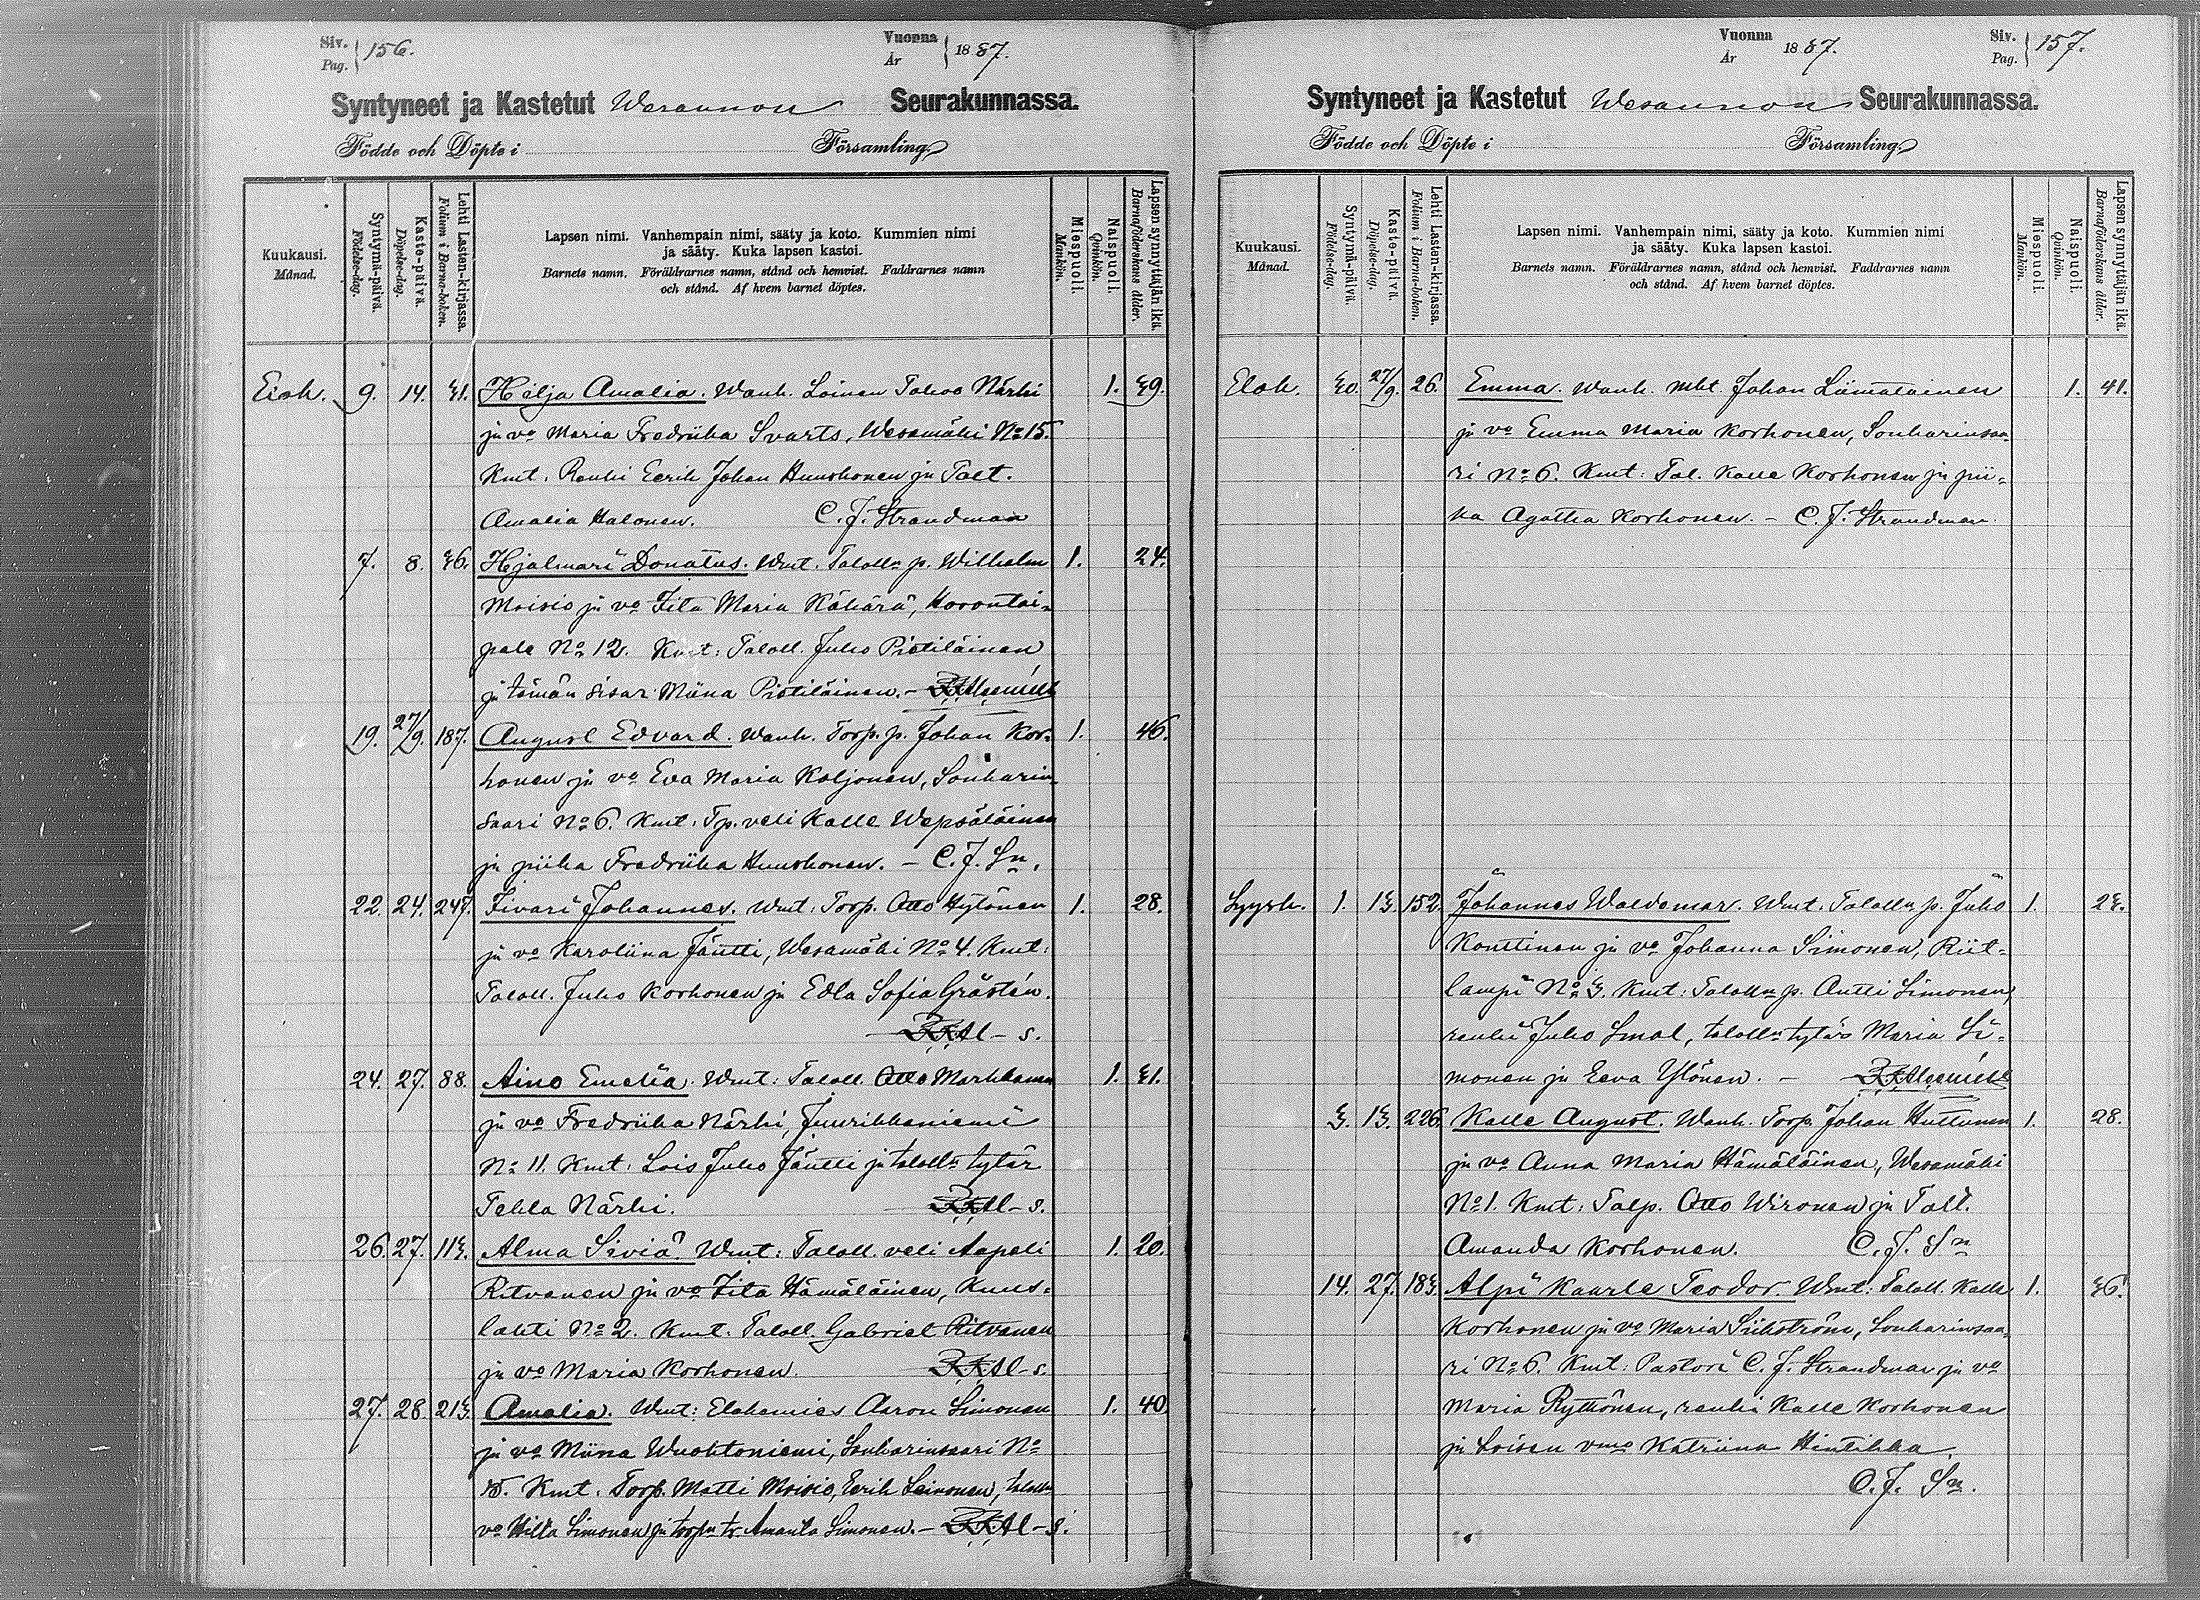 Siv. Pag. 156.
Vuonna År 1887.
Syntyneet ja Kastetut Wesannon Seurakunnassa.
Födde och Döpte i Församling.
Kuukausi. Månad.
Syntymä-päivä. Födelse-dag.
Kaste-päivä. Döpelse-dag.
Lehti Lasten-kirjassa. Folium i Barna-boken.
Lapsen nimi. Vanhempain nimi, sääty ja koto. Kummien nimi
ja sääty. Kuka lapsen kastoi.
Barnets namn. Föräldrarnes namn, stånd och hemvist. Faddrarnes namn
och stånd. Af hvem barnet döptes.
Miespuoli. Mankön.
Naispuoli. Qvinkön.
Lapsen synnyttäjän ikä. Barnaföderskans ålder.
Elok. 9. 14. 31. Hilja Amalia. Wanh. Loinen Taavo Närhi 1. 39.
ja vo Maria Fredriika Svarts, Wesamäki No 15.
Kmt. Renki Eerik Johan Huuskonen ja Talt.
Amalia Halonen. C. J. Strandman
7. 8. 36. Hjalmari Donatus. Wmt. Talolln p. Wilhelm 1. 24.
Moisio ja vo Fita Maria Kähärä, Horontai-
pale No 12. Kmt: Taloll. Juho Pistiläinen
ja tämän sisar Miina Pistiläinen. -
19. 27/9. 187. August Edvard. Wanh. Torp. p. Johan Kor- 1. 46.
honen ja vo Eva Maria Koljonen, Sonkarin-
saari No 6. Kmt. Tp. veli Kalle Wepsäläinen
ja piika Fredriika Huuskonen. - C. J. Sn.
22. 24. 247. Iivari Johannes. Wmt. Torp. Otto Hytönen 1. 28.
ja vo Karoliina Jäntti, Wesamäki No 4. Kmt:
Taloll. Juho Korhonen ja Edla Sofia Grästén.
Al-s.
24. 27. 88. Aino Emelia. Wmt: Taloll. Otto Markkanen 1. 31.
ja vo Fredriika Närhi, Juurikkaniemi
No 11. Kmt. Lois Juho Jäntti ja talolln tytär
Tekla Närhi. Al-s.
26. 27. 113. Alma Siviä. Wmt: Taloll. veli Aapeli 1. 20.
Ritvanen ja vo Fita Hämäläinen, Kuus-
lahti No 2. Kmt. Taloll. Gabriel Ritvanen
ja vo Maria Korhonen. Al-s.
27. 28. 213. Amalia. Wmt: Elokemies Aaron Simonen 1. 40
ja vo Miina Wuohtoniemi, Sonkarinsaari No
Kmt. Torp. Matti Moisio, Eerik Leinonen, talolln
vo Hilta Simonen ja torpn tr Amanta Simonen. - Al-s.
Vuonna År 1887.
Siv. Pag. 157.
Syntyneet ja Kastetut Wesannon Seurakunnassa.
Födde och Döpte i Församling.
Kuukausi. Månad.
Syntymä-päivä. Födelse-dag.
Kaste-päivä. Döpelse-dag.
Lehti Lasten-kirjassa. Folium i Barna-boken.
Lapsen nimi. Vanhempain nimi, sääty ja koto. Kummien nimi
ja sääty. Kuka lapsen kastoi.
Barnets namn. Föräldrarnes namn, stånd och hemvist. Faddrarnes namn
och stånd. Af hvem barnet döptes.
Miespuoli. Mankön.
Naispuoli. Qvinkön.
Lapsen synnyttäjän ikä. Barnaföderskans ålder.
Elok. 30. 27/9. 26. Emma. Wanh. Mkt. Johan Liimatainen 1. 41.
ja vo Emma Maria Korhonen, Sonkarinsaa-
ri No 6. Kmt: Tal. Kalle Korhonen ja pii-
ka Agatha Korhonen. - C. J. Strandman.
Syysk. 1. 13. 152. Johannes Waldemar. Wmt. Talolln p. Juho 1. 23.
Konttinen ja vo Johanna Simonen, Riit-
lampi No 3. Kmt: Talolln p. Antti Simonen,
renki Juho Smal, talolln tytär Maria Si-
monen ja Eeva Ylönen. -
3. 13. 226. Kalle August. Wanh. Torp. Johan Huttunen 1. 28.
ja vo Anna Maria Hämäläinen, Wesamäki
No 1. Kmt: Talp. Otto Wironen ja Talt.
Amanda Korhonen. C. J. Sn
14. 27. 183. Alpi Kaarle Teodor. Wmt: Taloll. Kalle 1. 36.
Korhonen ja vo Maria Siikström, Sonkarinsaa-
ri No 6. Kmt: Pastori C. J. Strandman ja vo
Maria Ryttönen, renki Kalle Korhonen
ja Loisen vmo Katriina Hintikka.
C. J. Sn.